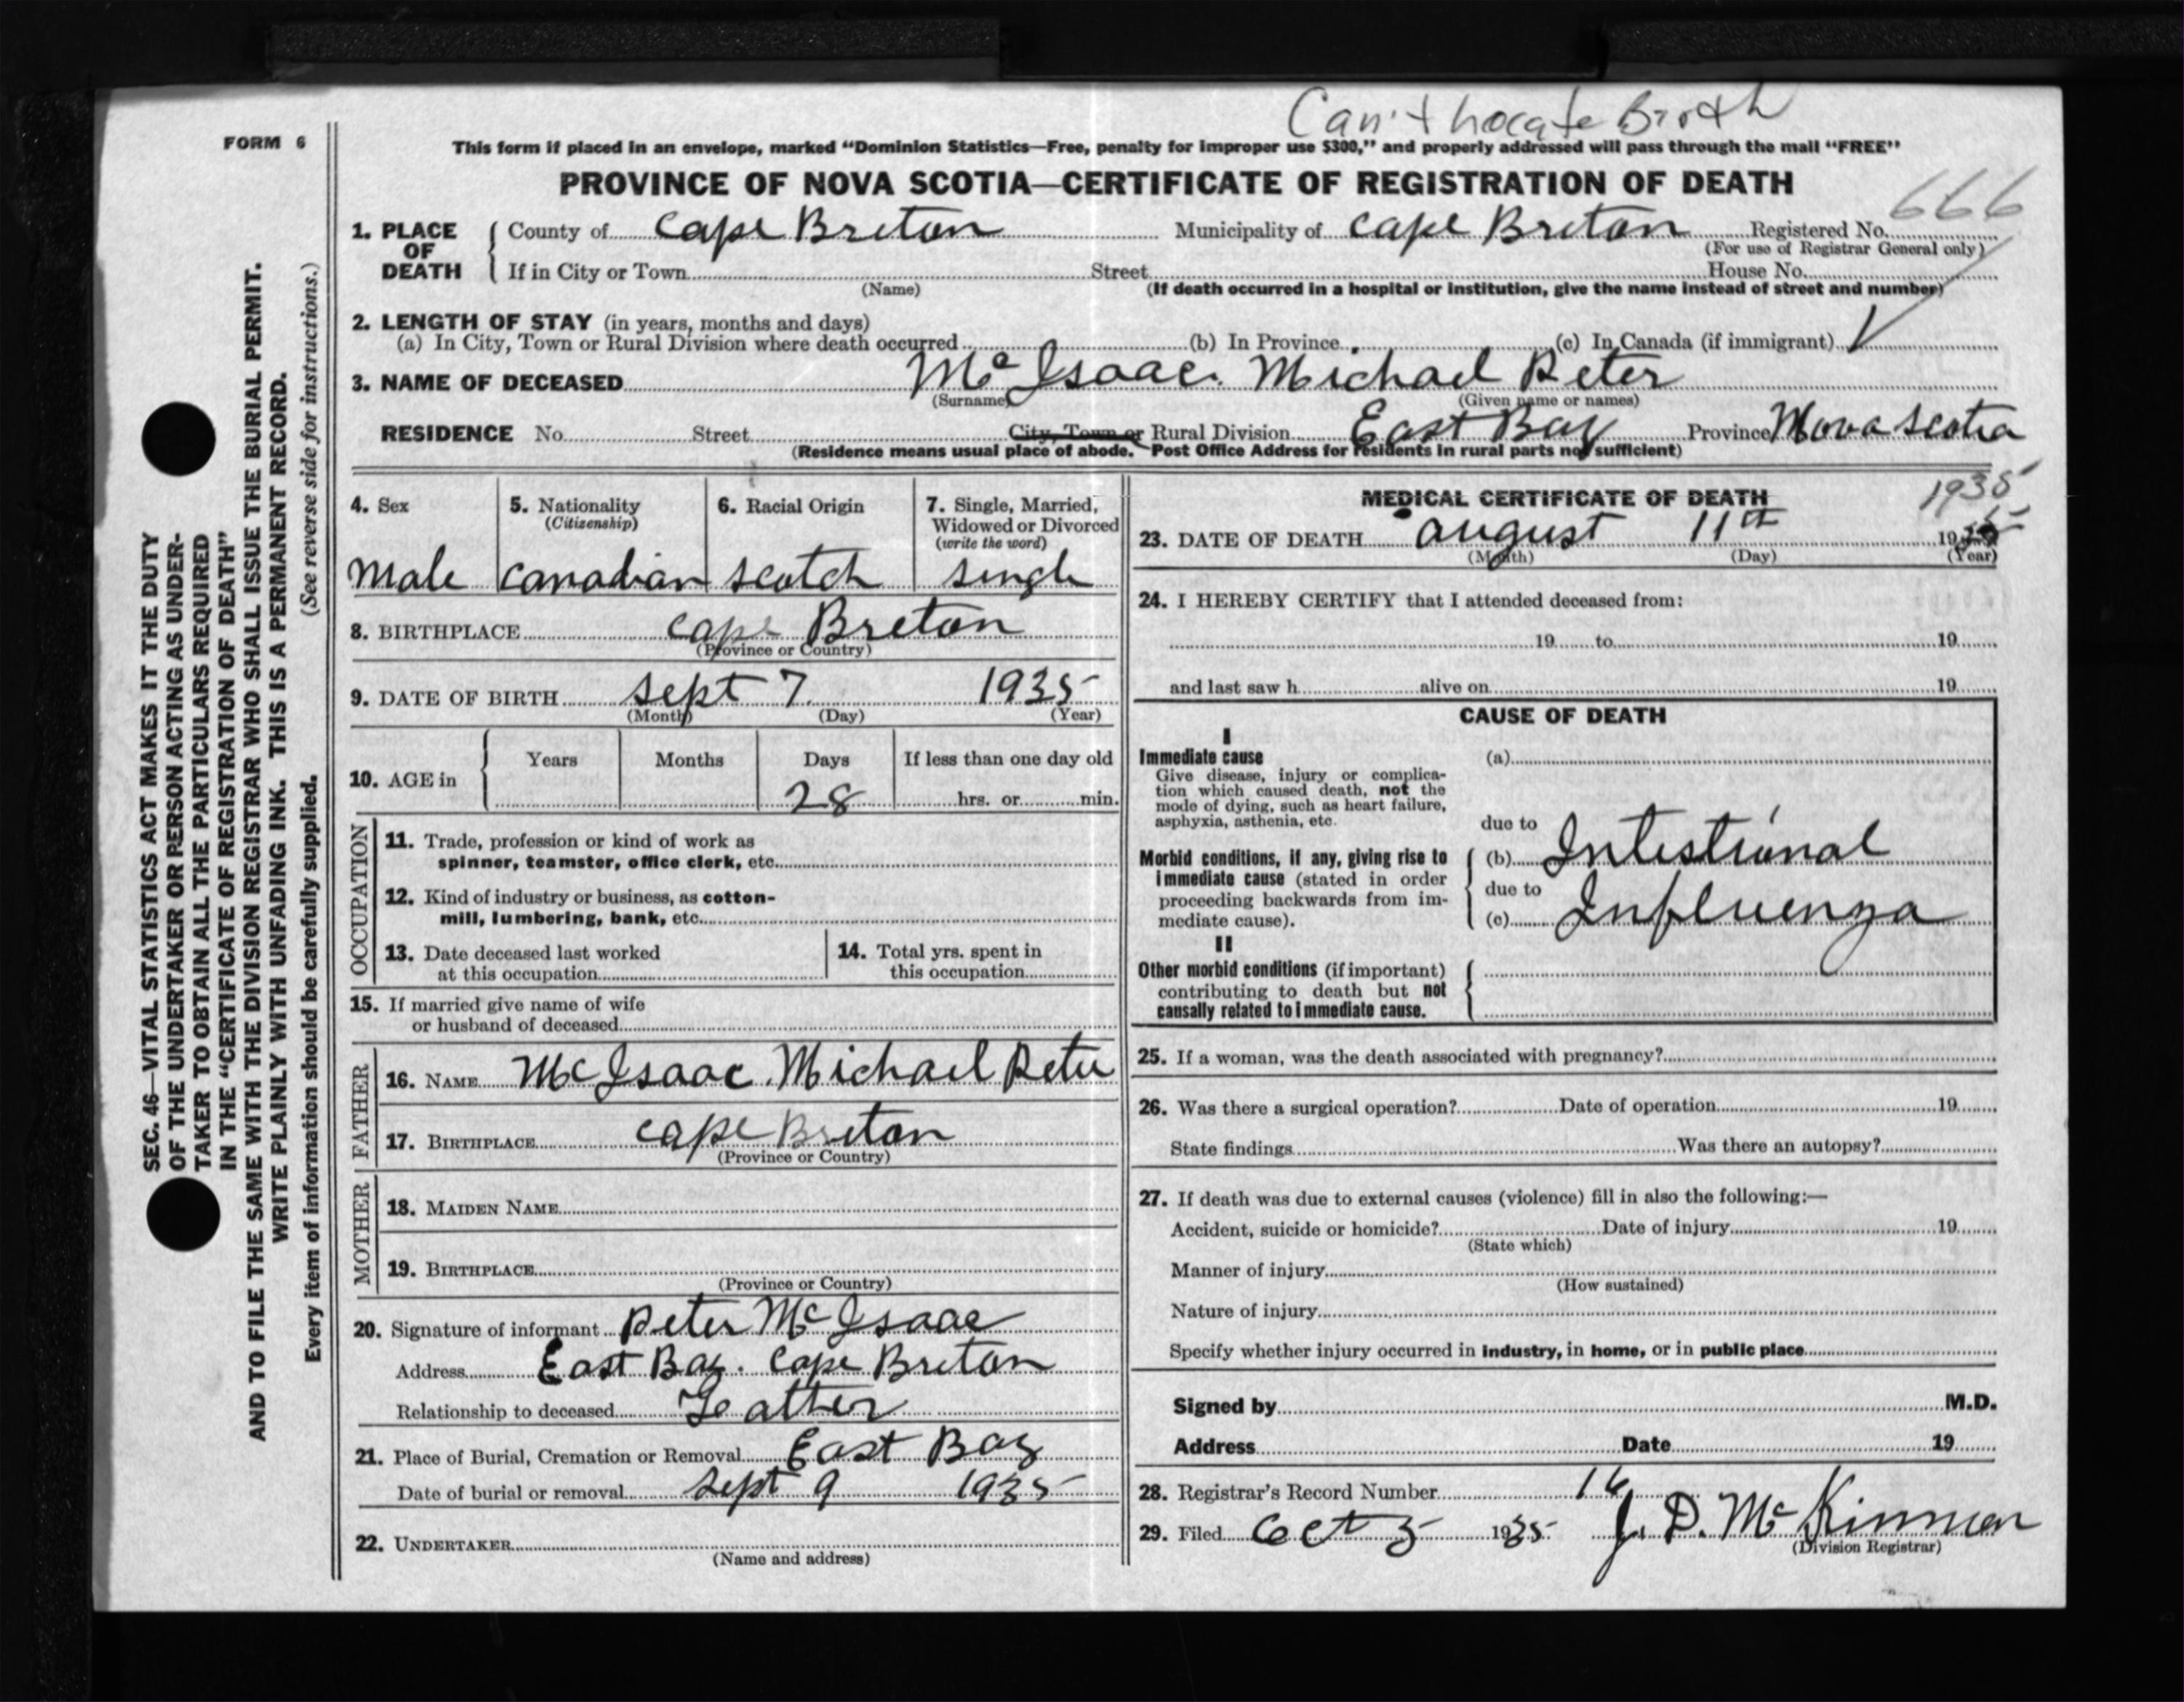 Can't Locate Birth
FORM 6
This form if placed in an envelope, marked "Dominion Statistics—Free, penalty for improper use $300," and properly addressed will pass through the mail "FREE"
PROVINCE OF NOVA SCOTIA—CERTIFICATE OF REGISTRATION OF DEATH
666
1. PLACE OF DEATH { County of Cape Breton Municipality of Cape Breton Registered No.
(For use of Registrar General only)
If in City or Town Street House No.
(Name) (If death occurred in a hospital or institution, give the name instead of street and number)
2. LENGTH OF STAY (in years, months and days)
(a) In City, Town or Rural Division where death occurred (b) In Province (c) In Canada (if immigrant)
3. NAME OF DECEASED McIsaac. Michael Peter
(Surname) (Given name or names)
RESIDENCE No. Street City, Town or Rural Division East Bay Province Nova Scotia
(Residence means usual place of abode. Post Office Address for residents in rural parts not sufficient)
4. Sex
Male
5. Nationality
(Citizenship)
Canadian
6. Racial Origin
Scotch
7. Single, Married,
Widowed or Divorced
(write the word)
single
8. BIRTHPLACE Cape Breton
(Province or Country)
9. DATE OF BIRTH Sept 7 1935
(Month) (Day) (Year)
10. AGE in { Years Months Days If less than one day old
28 hrs. or min.
OCCUPATION
11. Trade, profession or kind of work as
spinner, teamster, office clerk, etc.
12. Kind of industry or business, as cotton-
mill, lumbering, bank, etc.
13. Date deceased last worked
at this occupation
14. Total yrs. spent in
this occupation
15. If married give name of wife
or husband of deceased
FATHER
16. NAME McIsaac. Michael Peter
17. BIRTHPLACE Cape Breton
(Province or Country)
MOTHER
18. MAIDEN NAME
19. BIRTHPLACE
(Province or Country)
20. Signature of informant Peter McIsaac
Address East Bay. Cape Breton
Relationship to deceased Father
21. Place of Burial, Cremation or Removal East Bay
Date of burial or removal Sept 9 1935
22. UNDERTAKER
(Name and address)
MEDICAL CERTIFICATE OF DEATH
1935
23. DATE OF DEATH August 11th 19
(Month) (Day) (Year)
24. I HEREBY CERTIFY that I attended deceased from:
19 to 19
and last saw h alive on 19
CAUSE OF DEATH
I
Immediate cause (a)
Give disease, injury or complica-
tion which caused death, not the
mode of dying, such as heart failure,
asphyxia, asthenia, etc.
due to
Morbid conditions, if any, giving rise to
immediate cause (stated in order
proceeding backwards from im-
mediate cause).
(b) Intestional
due to
(c) Influenza
II
Other morbid conditions (if important)
contributing to death but not
causally related to immediate cause.
25. If a woman, was the death associated with pregnancy?
26. Was there a surgical operation? Date of operation 19
State findings Was there an autopsy?
27. If death was due to external causes (violence) fill in also the following:—
Accident, suicide or homicide? Date of injury 19
(State which)
Manner of injury
(How sustained)
Nature of injury
Specify whether injury occurred in industry, in home, or in public place
Signed by M.D.
Address Date 19
28. Registrar's Record Number 16
29. Filed Oct 5 1935 J. D. McKinnon
(Division Registrar)
SEC. 46—VITAL STATISTICS ACT MAKES IT THE DUTY
OF THE UNDERTAKER OR PERSON ACTING AS UNDER-
TAKER TO OBTAIN ALL THE PARTICULARS REQUIRED
IN THE "CERTIFICATE OF REGISTRATION OF DEATH"
AND TO FILE THE SAME WITH THE DIVISION REGISTRAR WHO SHALL ISSUE THE BURIAL PERMIT.
WRITE PLAINLY WITH UNFADING INK. THIS IS A PERMANENT RECORD.
Every item of information should be carefully supplied. (See reverse side for instructions.)